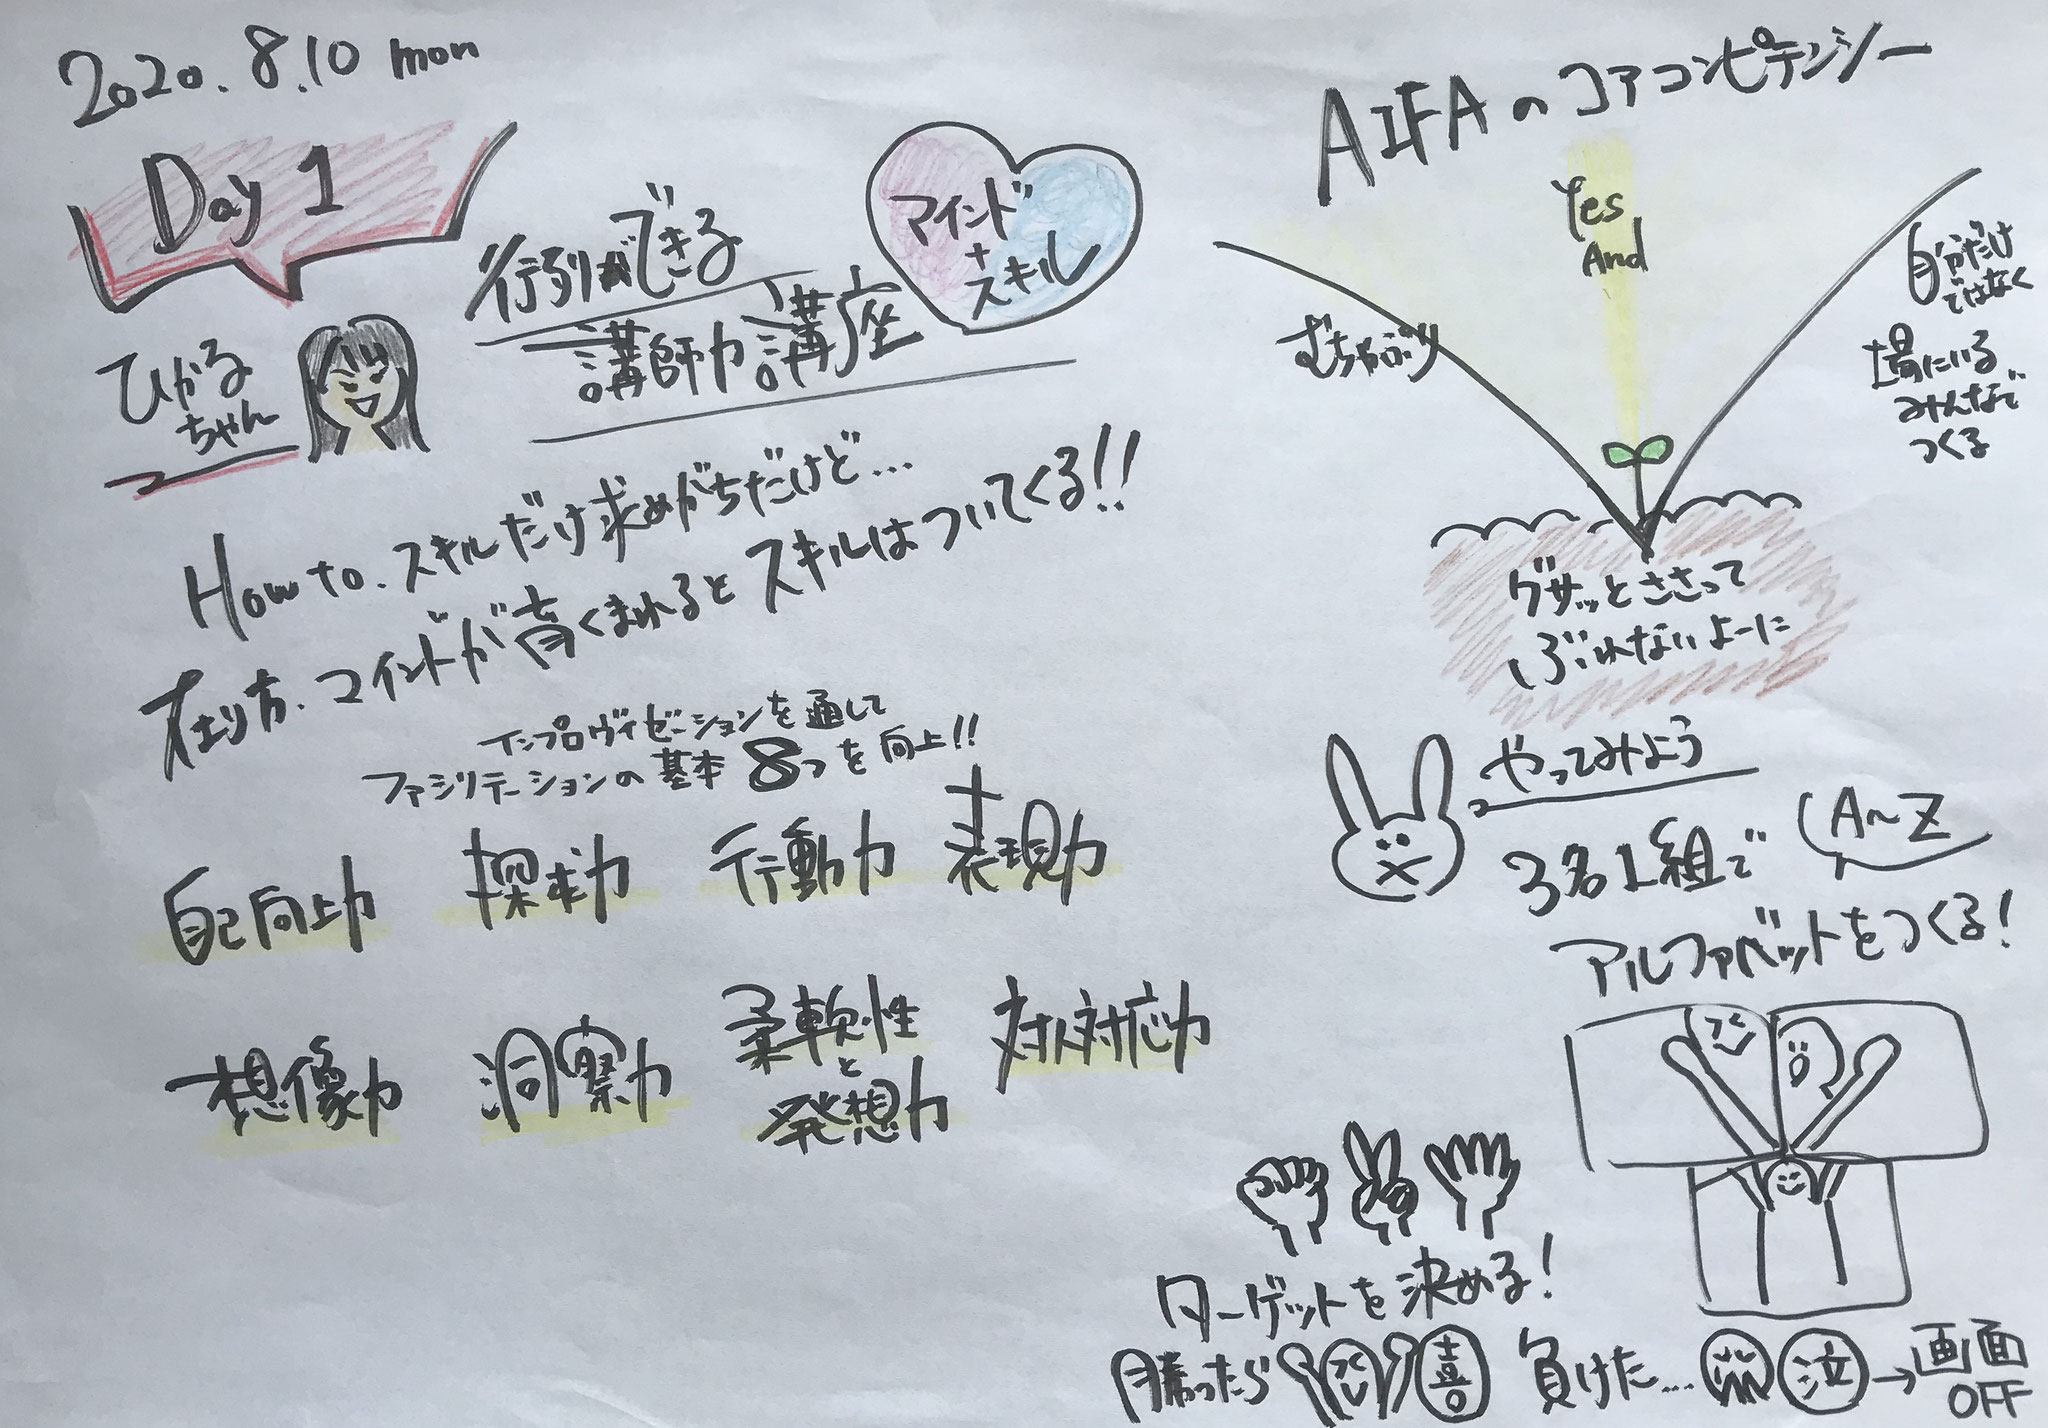 2020.8.10 mon
Day 1
ひかる
ちゃん
行列ができる
講師力講座
マインド
+
スキル
How to.スキルだけ求めがちだけど...
在り方.マインドが育くまれるとスキルはついてくる!!
インプロヴィゼーションを通して
ファシリテーションの基本8つを向上!!
自己向上力
探求力
行動力
表現力
想像力
洞察力
柔軟性
と
発想力
対人対応力
AIFAのコアコンピテンシー
Yes
And
むちゃぶり
自分だけ
ではなく
場にいる
みんなで
つくる
グサッとささって
ぶれないよーに
やってみよう
3名1組で
A〜Z
アルファベットをつくる!
ターゲットを決める!
勝ったら 喜 負けた... 泣→画面
OFF